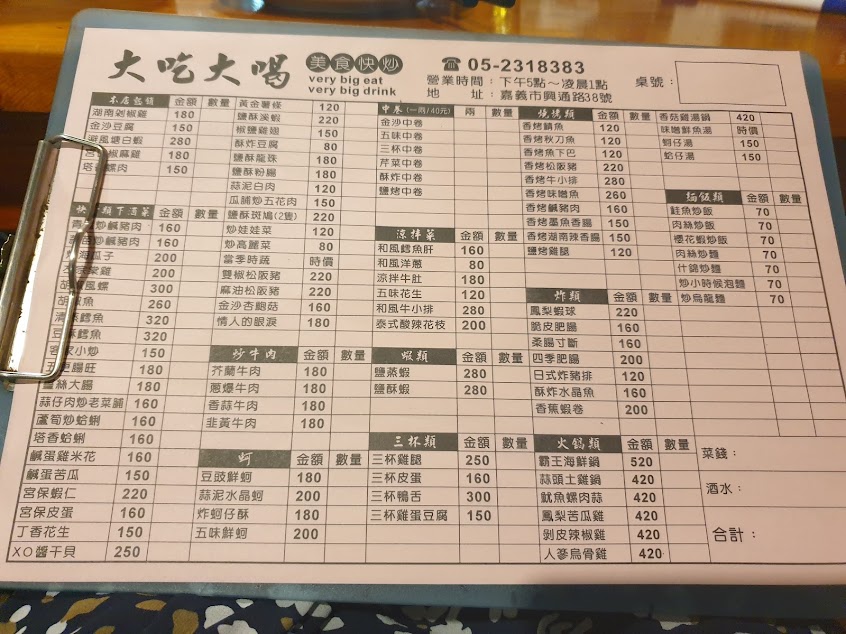 大吃大喝
美食快炒
very big eat
very big drink
☎05-2318383
營業時間：下午5點～凌晨1點
地　址：嘉義市興通路38號
桌號：
本店包領 金額 數量
湖南剁椒雞 180
金沙豆腐 150
避風塘白蝦 280
椒麻雞 180
螺肉 150
下酒菜 金額 數量
炒鹹豬肉 160
炒鹹豬肉 160
瓜子 200
雞 200
風螺 300
魚 260
鱈魚 320
鱈魚 320
小炒 150
腸旺 180
薑絲大腸 180
蒜仔肉炒老菜脯 160
蘆筍炒蛤蜊 160
塔香蛤蜊 160
鹹蛋雞米花 160
鹹蛋苦瓜 150
宮保蝦仁 220
宮保皮蛋 160
丁香花生 150
XO醬干貝 250
黃金薯條 120
鹽酥溪蝦 220
椒鹽雞翅 150
酥炸豆腐 80
鹽酥龍珠 180
鹽酥粉腸 180
蒜泥白肉 120
瓜脯炒五花肉 150
鹽酥斑鳩(2隻) 220
炒娃娃菜 120
炒高麗菜 80
當季時蔬 時價
雙椒松阪豬 220
麻油松阪豬 220
金沙杏鮑菇 160
情人的眼淚 180
炒牛肉 金額 數量
芥蘭牛肉 180
蔥爆牛肉 180
香蒜牛肉 180
韭黃牛肉 180
蚵 金額 數量
豆豉鮮蚵 180
蒜泥水晶蚵 200
炸蚵仔酥 180
五味鮮蚵 200
中卷(一兩/40元) 兩 數量
金沙中卷
五味中卷
三杯中卷
芹菜中卷
酥炸中卷
鹽烤中卷
涼拌菜 金額 數量
和風鱈魚肝 160
和風洋蔥 80
涼拌牛肚 180
五味花生 120
和風牛小排 280
泰式酸辣花枝 200
蝦類 金額 數量
鹽蒸蝦 280
鹽酥蝦 280
三杯類 金額 數量
三杯雞腿 250
三杯皮蛋 160
三杯鴨舌 300
三杯雞蛋豆腐 150
燒烤類 金額 數量
香烤鯖魚 120
香烤秋刀魚 120
香烤魚下巴 120
香烤松阪豬 220
香烤牛小排 280
香烤味噌魚 260
香烤鹹豬肉 160
香烤墨魚香腸 150
香烤湖南辣香腸 150
鹽烤雞腿 120
炸類 金額 數量
鳳梨蝦球 220
脆皮肥腸 160
柔腸寸斷 160
四季肥腸 200
日式炸豬排 120
酥炸水晶魚 160
香蕉蝦卷 200
火鍋類 金額 數量
霸王海鮮鍋 520
蒜頭土雞鍋 420
魷魚螺肉蒜 420
鳳梨苦瓜雞 420
剝皮辣椒雞 420
人蔘烏骨雞 420
香菇雞湯鍋 420
味噌鮮魚湯 時價
蚵仔湯 150
蛤仔湯 150
麵飯類 金額 數量
鮭魚炒飯 70
肉絲炒飯 70
櫻花蝦炒飯 70
肉絲炒麵 70
什錦炒麵 70
炒小時候泡麵 70
炒烏龍麵 70
菜錢：
酒水：
合計：